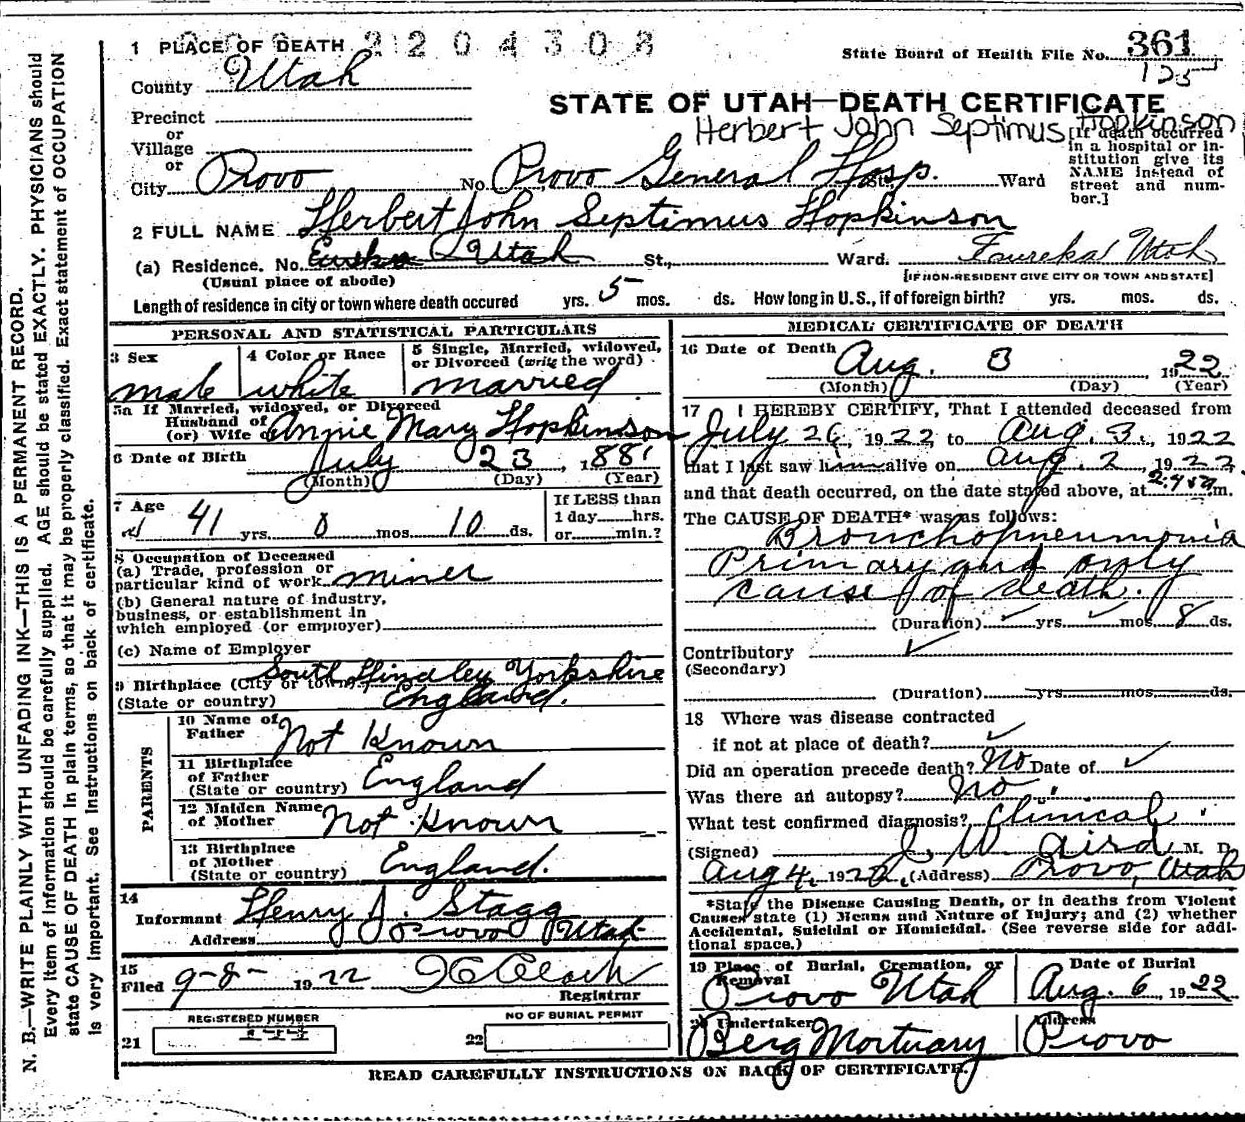 2204308
1 PLACE OF DEATH
State Board of Health File No. 361
125
County Utah
STATE OF UTAH—DEATH CERTIFICATE
Herbert John Septimus Hopkinson
Precinct
or
Village
or
City Provo No. Provo General Hosp. St., Ward
[If death occurred in a hospital or institution give its NAME instead of street and number.]
2 FULL NAME Herbert John Septimus Hopkinson
(a) Residence. No. Eureka Utah St., Ward. Eureka Utah
(Usual place of abode) [IF NON-RESIDENT GIVE CITY OR TOWN AND STATE]
Length of residence in city or town where death occured yrs. 5 mos. ds. How long in U. S., if of foreign birth? yrs. mos. ds.
PERSONAL AND STATISTICAL PARTICULARS
3 Sex
male
4 Color or Race
white
5 Single, Married, widowed, or Divorced (write the word)
married
5a If Married, widowed, or Divorced
Husband of
(or) Wife of Annie Mary Hopkinson
6 Date of Birth July 23, 1881
(Month) (Day) (Year)
7 Age
41 yrs. 0 mos. 10 ds.
If LESS than
1 day hrs.
or min.?
8 Occupation of Deceased
(a) Trade, profession or
particular kind of work miner
(b) General nature of industry,
business, or establishment in
which employed (or employer)
(c) Name of Employer
9 Birthplace (City or town) South Hindley Yorkshire
(State or country) England.
PARENTS
10 Name of
Father Not Known
11 Birthplace
of Father
(State or country) England
12 Maiden Name
of Mother Not Known
13 Birthplace
of Mother
(State or country) England.
14
Informant Henry J. Stagg
Address Provo Utah
15
Filed 9-8- 1922
Registrar
REGISTERED NUMBER
21
NO OF BURIAL PERMIT
22
MEDICAL CERTIFICATE OF DEATH
16 Date of Death Aug. 3 1922
(Month) (Day) (Year)
17 I HEREBY CERTIFY, That I attended deceased from
July 26, 1922 to Aug. 3., 1922
that I last saw him alive on Aug. 2, 1922
and that death occurred, on the date stated above, at m.
The CAUSE OF DEATH* was as follows:
Bronchopneumonia
Primary and only
cause of death.
(Duration) yrs. mos. 8 ds.
Contributory
(Secondary)
(Duration) yrs. mos. ds.
18 Where was disease contracted
if not at place of death?
Did an operation precede death? No Date of
Was there an autopsy? No.
What test confirmed diagnosis? Clinical
(Signed) J. W. Aird M. D.
Aug 4, 1922, (Address) Provo, Utah
*State the Disease Causing Death, or in deaths from Violent
Causes state (1) Means and Nature of Injury; and (2) whether
Accidental, Suicidal or Homicidal. (See reverse side for additional space.)
19 Place of Burial, Cremation, or
Removal
Provo Utah
Date of Burial
Aug. 6, 1922
20 Undertaker
Berg Mortuary
Address
Provo
READ CAREFULLY INSTRUCTIONS ON BACK OF CERTIFICATE.
N. B.—WRITE PLAINLY WITH UNFADING INK—THIS IS A PERMANENT RECORD.
Every item of information should be carefully supplied. AGE should be stated EXACTLY. PHYSICIANS should
state CAUSE OF DEATH in plain terms, so that it may be properly classified. Exact statement of OCCUPATION
is very important. See Instructions on back of certificate.